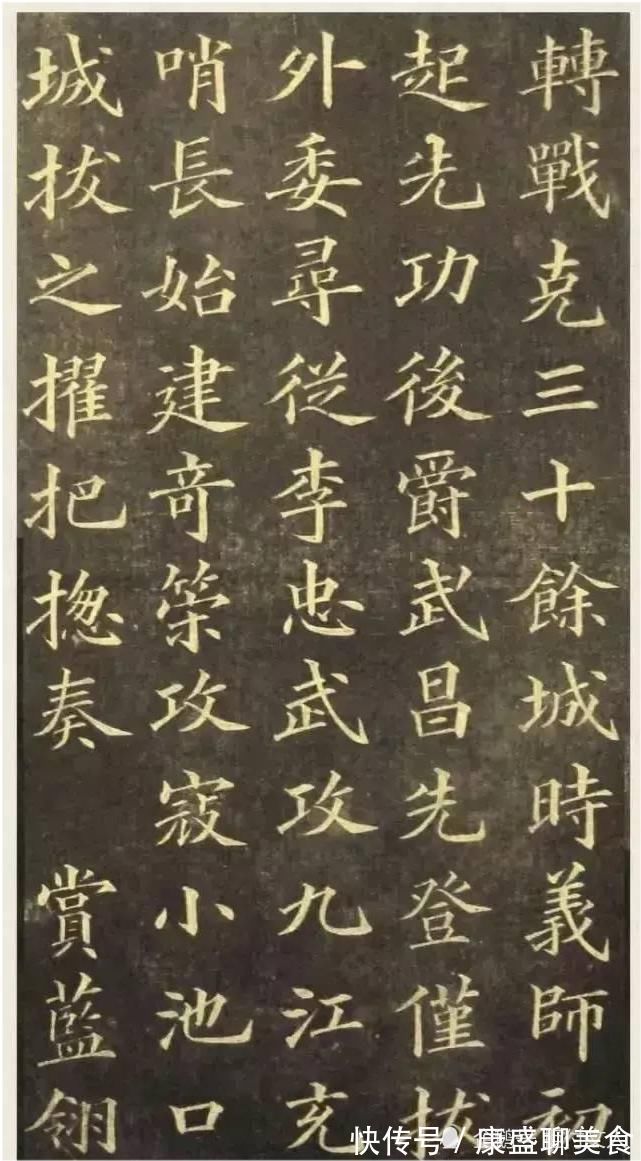 轉戰克三十餘城時義師初
起先功後爵武昌先登僅拔
外委尋從李忠武攻九江充
哨長始建奇策攻寇小池口
城拔之擢把揔奏賞藍翎
快传号 / 康盛聊美食